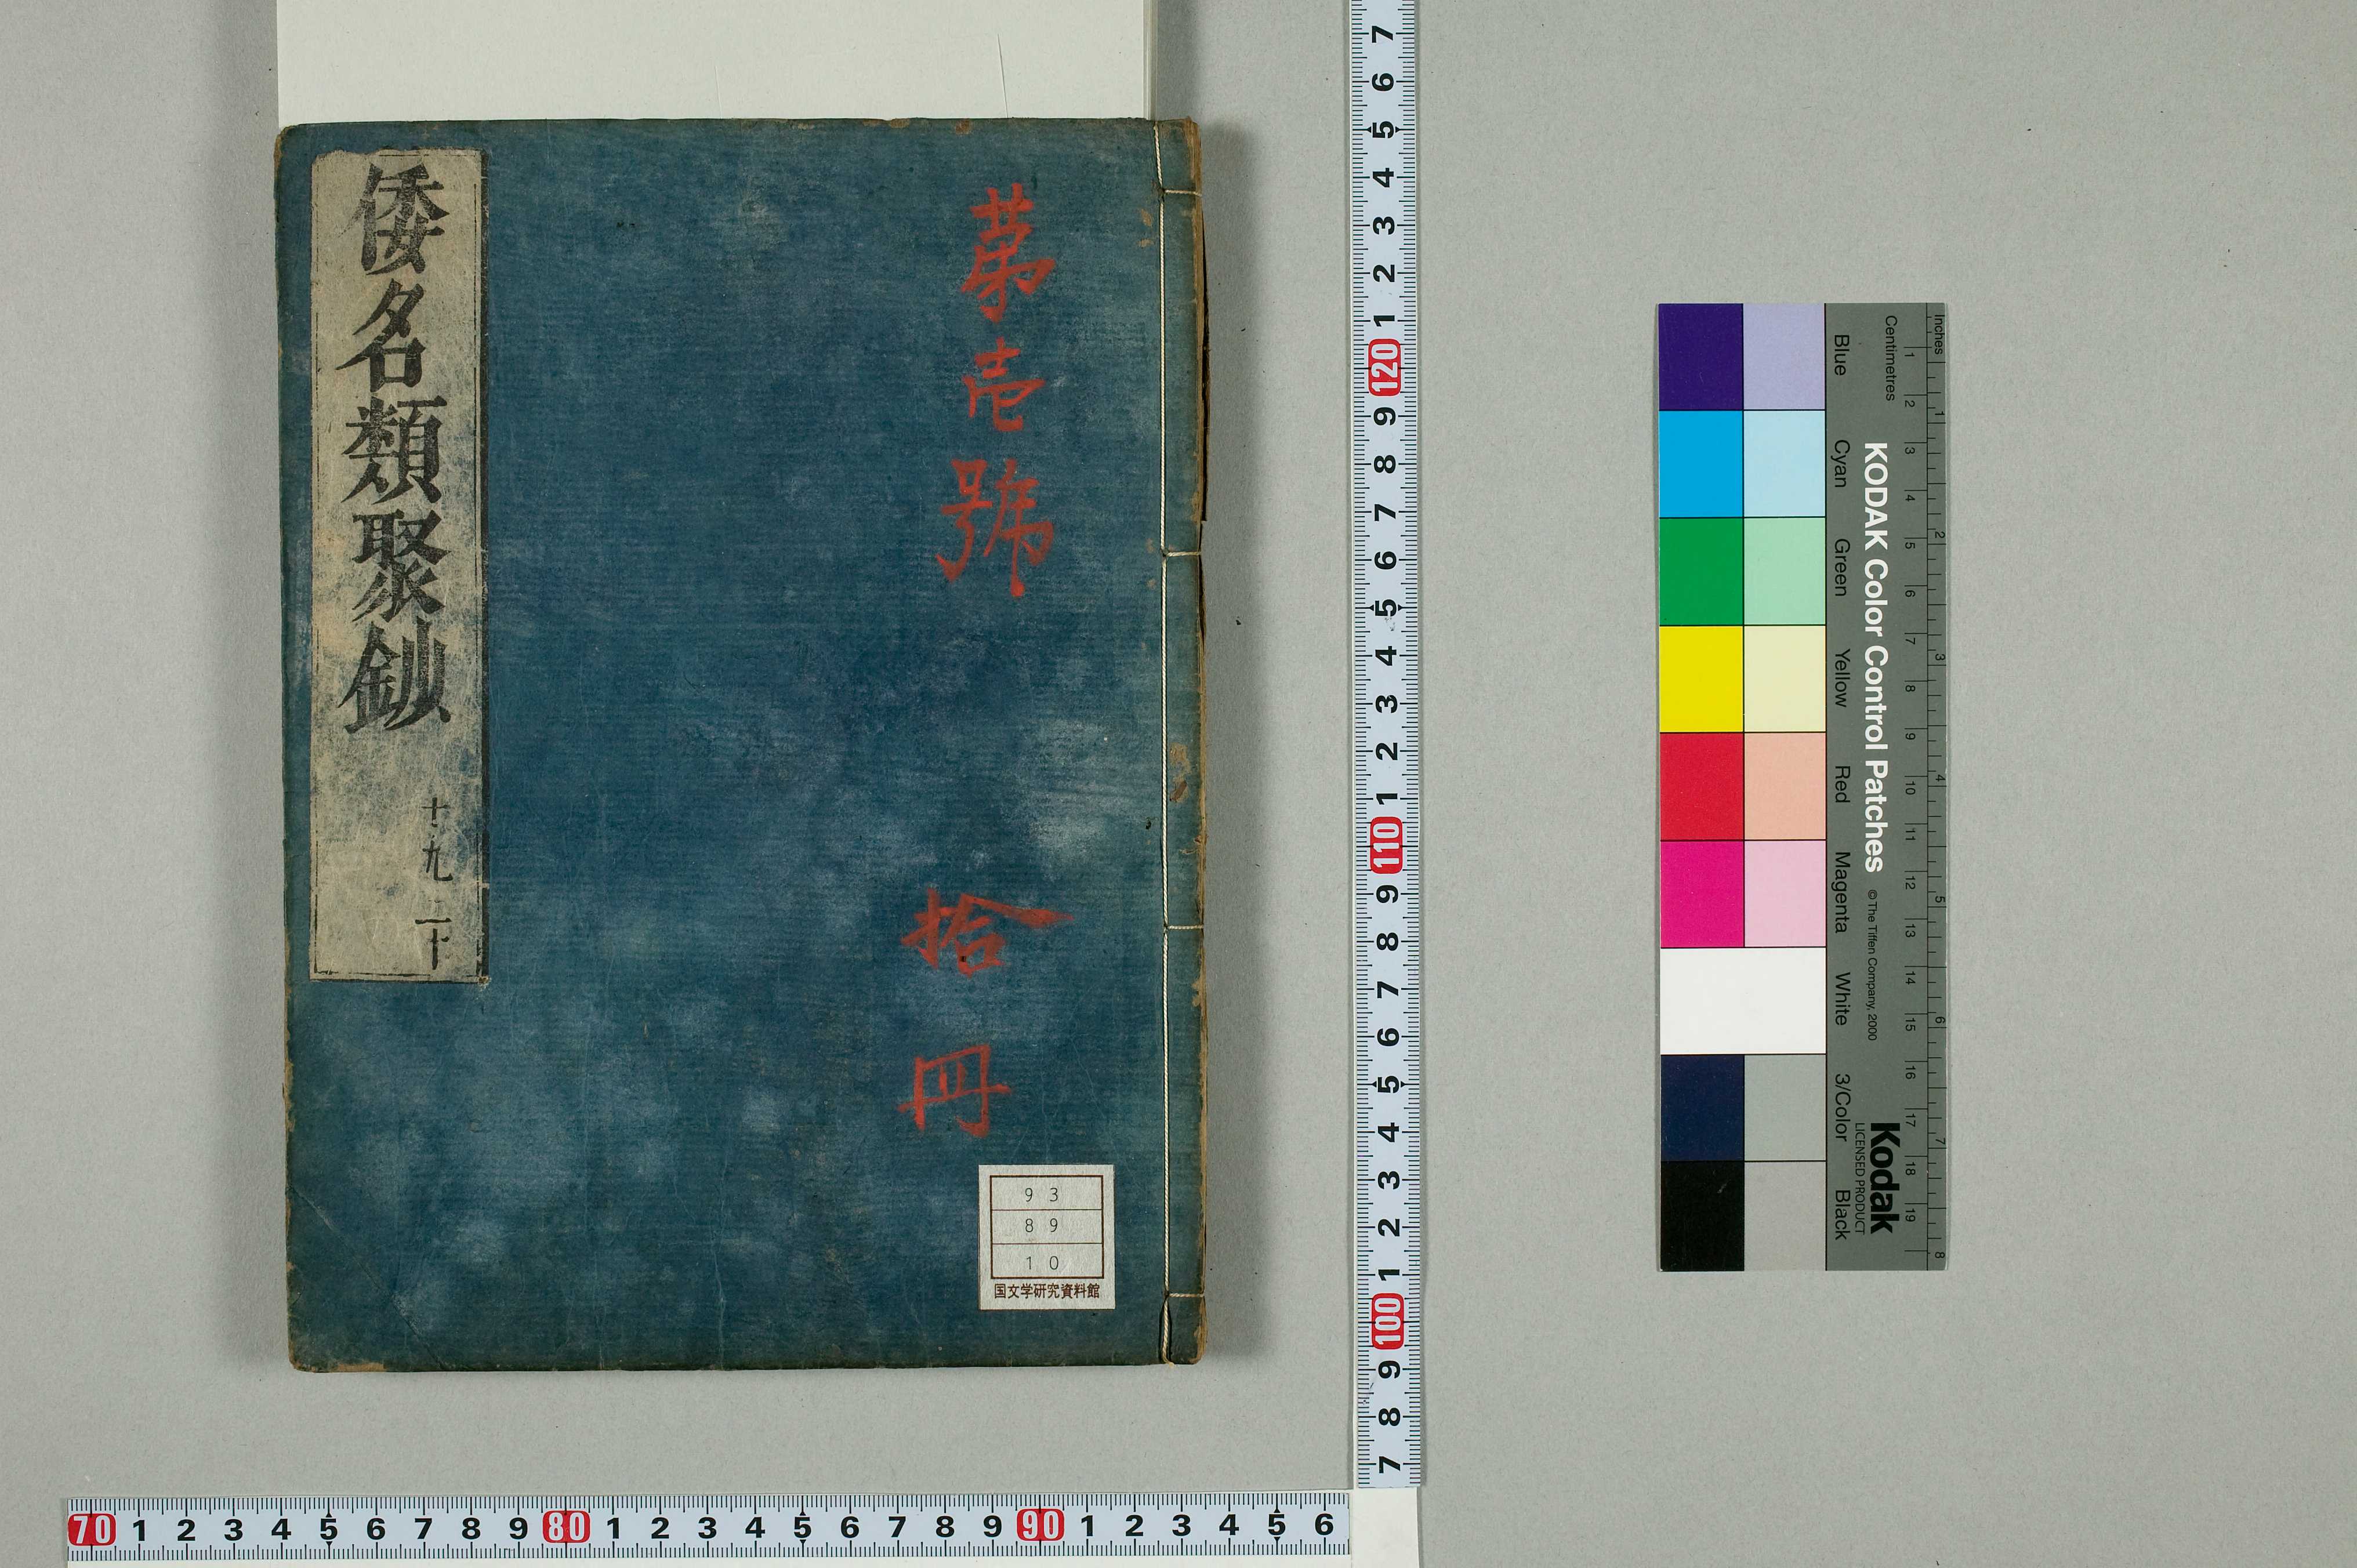 第壱號
拾冊
倭名類聚鈔
十九 二十
93
89
10
国文学研究資料館
7 6 5 4 3 2 1 120 9 8 7 6 5 4 3 2 1 110 9 8 7 6 5 4 3 2 1 100 9 8 7
70 1 2 3 4 5 6 7 8 9 80 1 2 3 4 5 6 7 8 9 90 1 2 3 4 5 6
Inches 1 2 3 4 5 6 7 8
Centimetres 1 2 3 4 5 6 7 8 9 10 11 12 13 14 15 16 17 18 19
KODAK Color Control Patches
© The Tiffen Company, 2000
Kodak
LICENSED PRODUCT
Blue Cyan Green Yellow Red Magenta White 3/Color Black